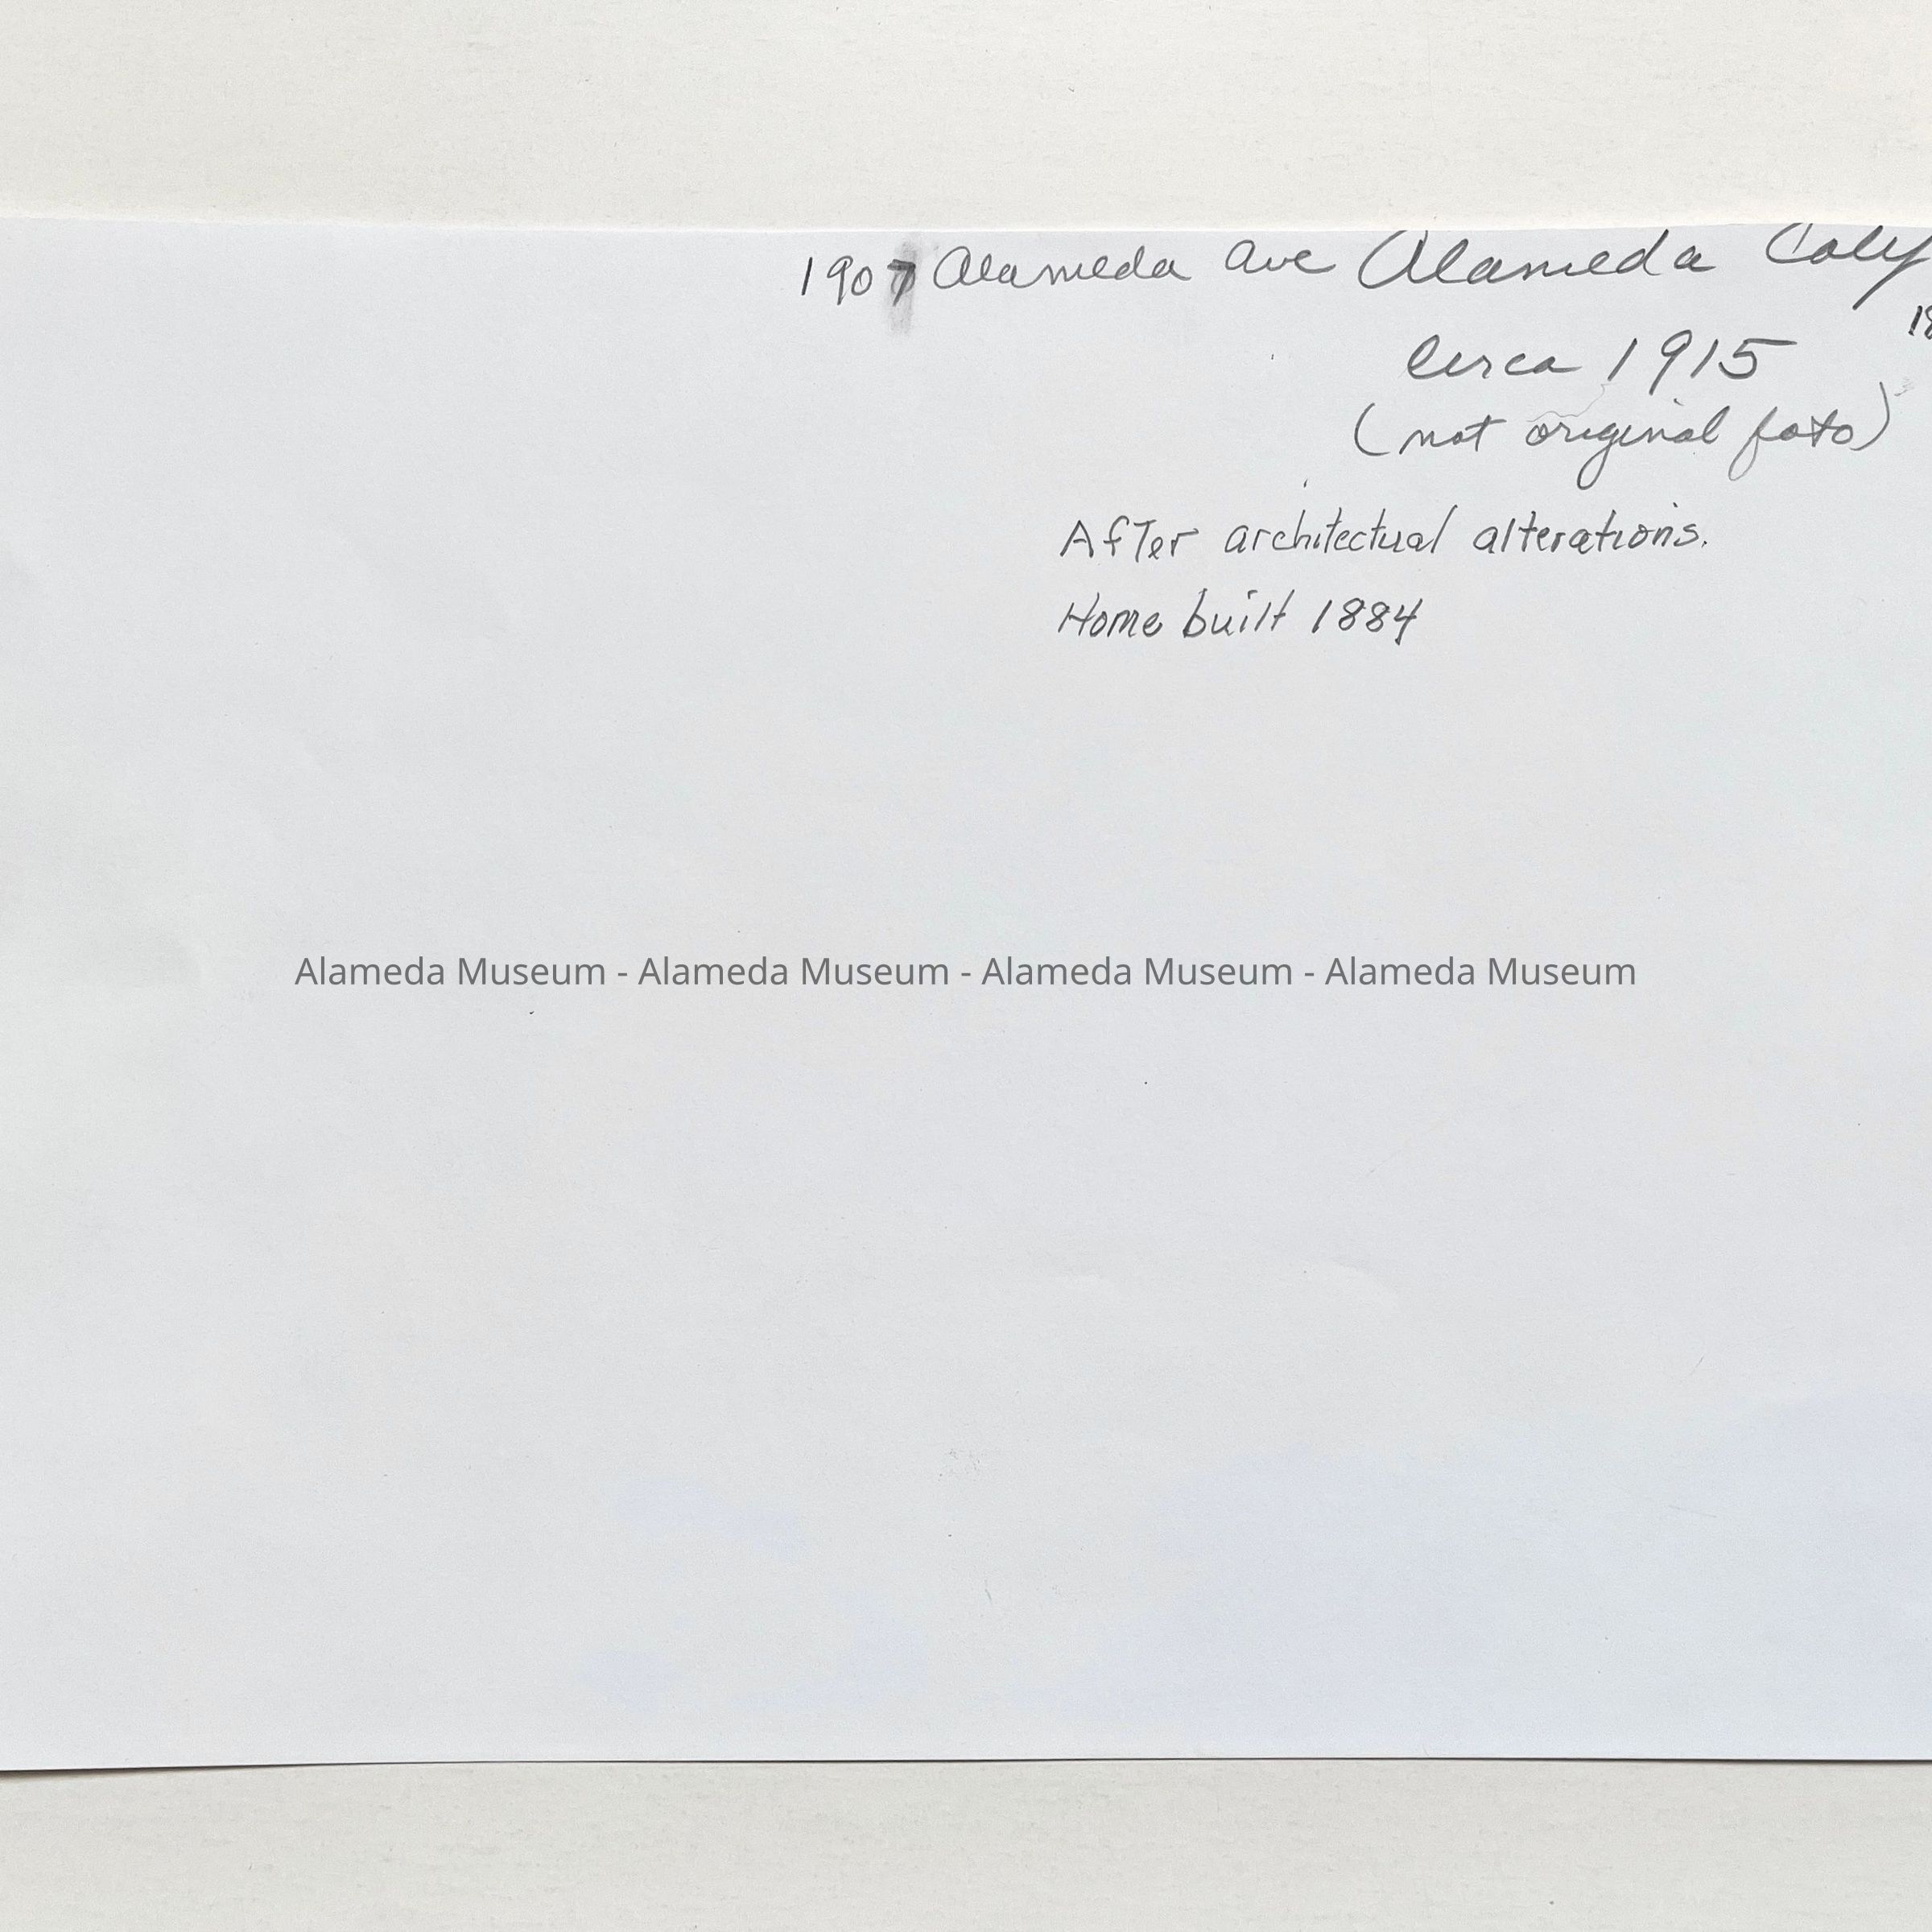 1907 Alameda Ave Alameda Calif
18
Circa 1915
(not original foto)
After architectual alterations.
Home built 1884
Alameda Museum - Alameda Museum - Alameda Museum - Alameda Museum